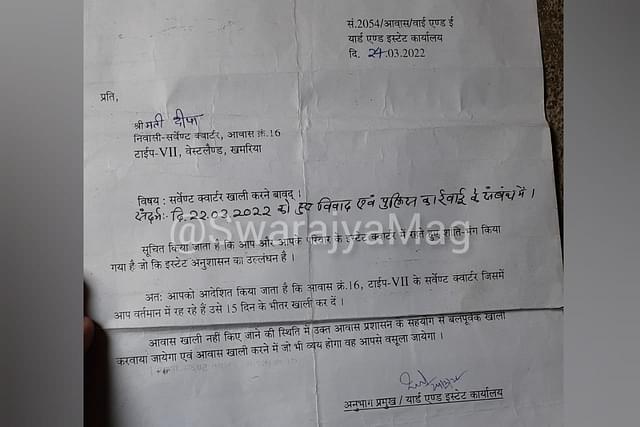 सं.2054/आवास/वाई एण्ड ई
यार्ड एण्ड इस्टेट कार्यालय
दि. 24.03.2022
प्रति,
श्रीमती दीपा
निवासी-सर्वेण्ट क्वार्टर, आवास क्रं.16
टाईप-VII, वेस्टलैण्ड, खमरिया
विषय : सर्वेण्ट क्वार्टर खाली करने बावद् ।
संदर्भ:- दि. 22.03.2022 को हुए विवाद एवं पुलिस कार्रवाई के संबंध में ।
@SwarajyaMag
सूचित किया जाता है कि आप और आपके परिवार के इस्टेट क्वार्टर में रहते हुए शांति-भंग किया
गया है जो कि इस्टेट अनुशासन का उल्लंघन है ।
अतः आपको आदेशित किया जाता है कि आवास क्रं.16, टाईप-VII के सर्वेण्ट क्वार्टर जिसमें
आप वर्तमान में रह रहे हैं उसे 15 दिन के भीतर खाली कर दें ।
आवास खाली नहीं किए जाने की स्थिति में उक्त आवास प्रशासन के सहयोग से बलपूर्वक खाली
करवाया जायेगा एवं आवास खाली करने में जो भी व्यय होगा वह आपसे वसूला जायेगा ।
अनुभाग प्रमुख / यार्ड एण्ड इस्टेट कार्यालय